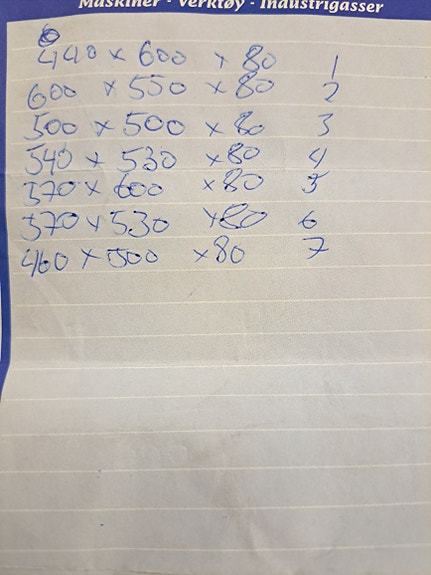 Maskiner - Verktøy - Industrigasser
440 x 600 x 80 1
600 x 550 x 80 2
500 x 500 x 80 3
540 x 530 x 80 4
370 x 600 x 80 5
370 x 530 x 80 6
460 x 500 x 80 7